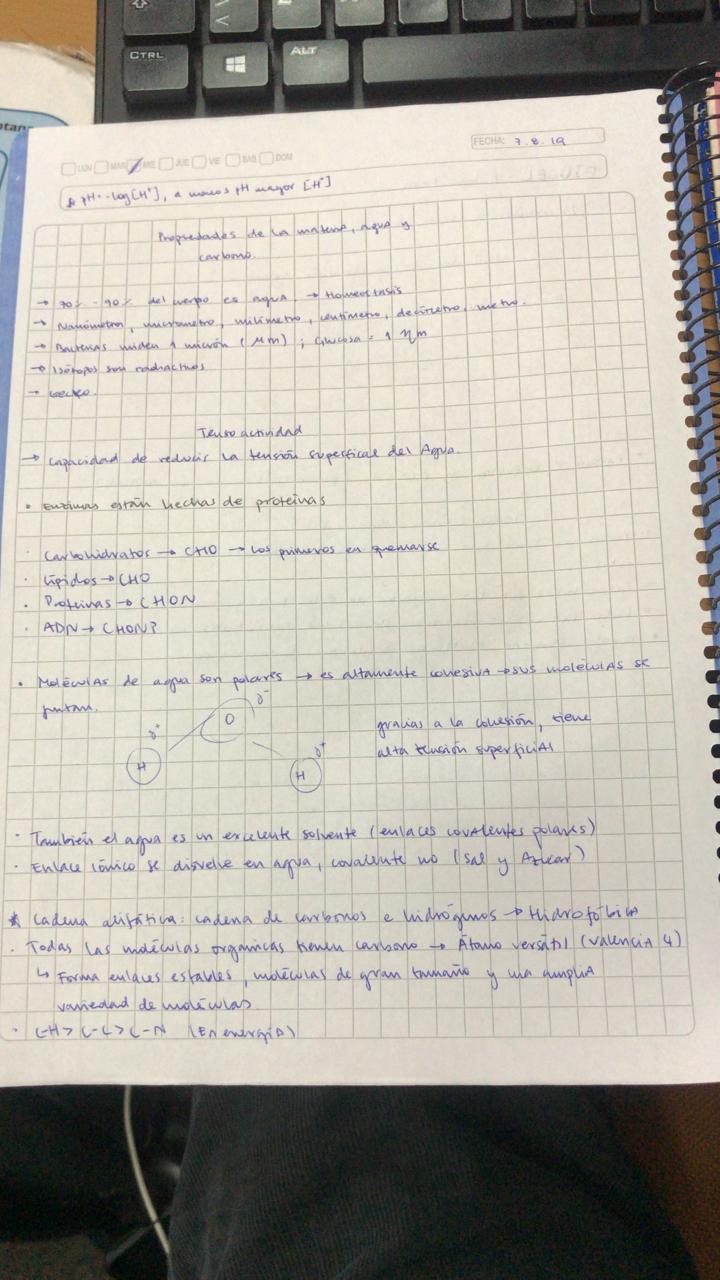 CTRL
ALT
LUN MAR MIE JUE VIE SAB DOM
FECHA: 7.8.19
pH = -log[H⁺], a menos pH mayor [H⁺]
Propiedades de la materia, agua y
carbono.
→ 70% - 90% del cuerpo es agua → Homeostasis
→ Nanómetro, micrometro, milímetro, centímetro, decímetro, metro.
→ Bacterias miden 1 micrón (μm) ; Glucosa = 1 ηm
→ Isótopos son radiactivos
→ Gecko.
Tensoactividad
→ Capacidad de reducir la tensión superficial del Agua
• Enzimas están hechas de proteínas
· Carbohidratos → CHO → Los primeros en quemarse
· Lípidos → CHO
· Proteínas → CHON
· ADN → CHON?
• Moléculas de agua son polares → es altamente cohesiva → sus moléculas se
juntan.
δ⁻
O
δ⁺
H
δ⁺
H
gracias a la cohesión, tiene
alta tensión superficial
· También el agua es un excelente solvente (enlaces covalentes polares)
· Enlace iónico se disuelve en agua, covalente no (Sal y Azucar)
* Cadena alifática: cadena de carbonos e hidrógenos → Hidrofóbica
· Todas las moléculas organicas tienen carbono → Átomo versátil (valencia 4)
↳ Forma enlaces estables, moléculas de gran tamaño y una amplia
variedad de moléculas.
· C-H > C-C > C-N (En energía)